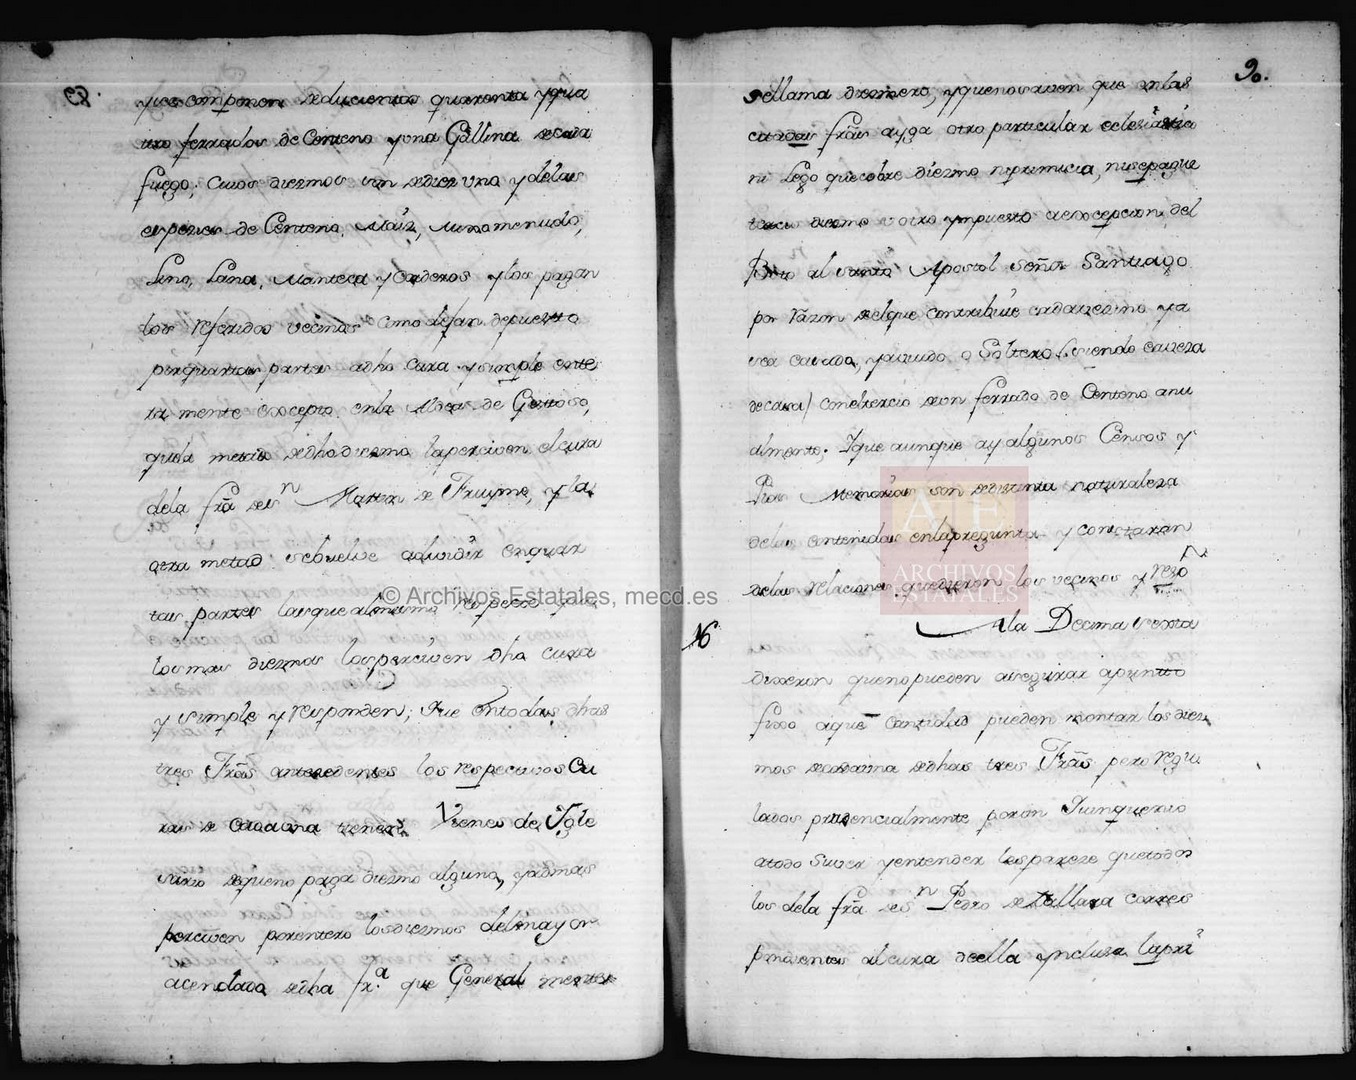 y se componen de ducientos quarenta y qua
tro ferrados de Centeno y una Gallina de cada
fuego; Cuios diezmos son de diez uno y delas
especies de Centeno, Maiz, Mixo menudo,
Lino, Lana, Manteca y Corderos y los pagan
los referidos vecinos como dejan depuesto
por quartas partes adho Cura y simple ente
ra mente excepto en la Aldea de Gestoso,
que la metad de dho diezmo la perciven el cura
dela frã de Sn Martin de Fruyme, y la
otra metad se buelve a dividir en quar
tas partes las que
los mas diezmos los perciven dho cura
y simple y responden; Que en todas dhas
tres Frãs antecedentes los respectivos Cu
ras de cada una tienen Vienes de Ygle
sario de que no paga diezmo alguno, y ademas
perciven por entero los diezmos del mayor
acendado de dha fra. que General mente
90.
se llama diezmero, y que no saven que en las
citadas frãs ayga otro particular eclesiastico
ni Lego que cobre diezmo ni primicia, ni se pague
otro ympuesto a excepcion del
Voto al santo Apostol Señor Santiago
por razon del que contribuie cada vezino ya
sea casado, y viudo o Soltero (siendo caveza
de casa) con el tercio de un ferrado de Centeno anu
almente; Y que aunque ay algunos Censos y
Pias Memorias son de distinta naturaleza
delas contenidas en la pregunta y constaran
delas relaciones que dieron los vecinos y respõ
16 A la Decima sexta
dixeron que no pueden asegurar a punto
fixo a que Cantidad pueden montar los diez
mos de cada una de dhas tres Frãs pero regu
lados prudencialmente por un Quinquenio
a todo Saver y entender les pareze que todos
los dela frã de Sn Pedro de Tallara correes
pondientes al cura de ella ynclusa la pri